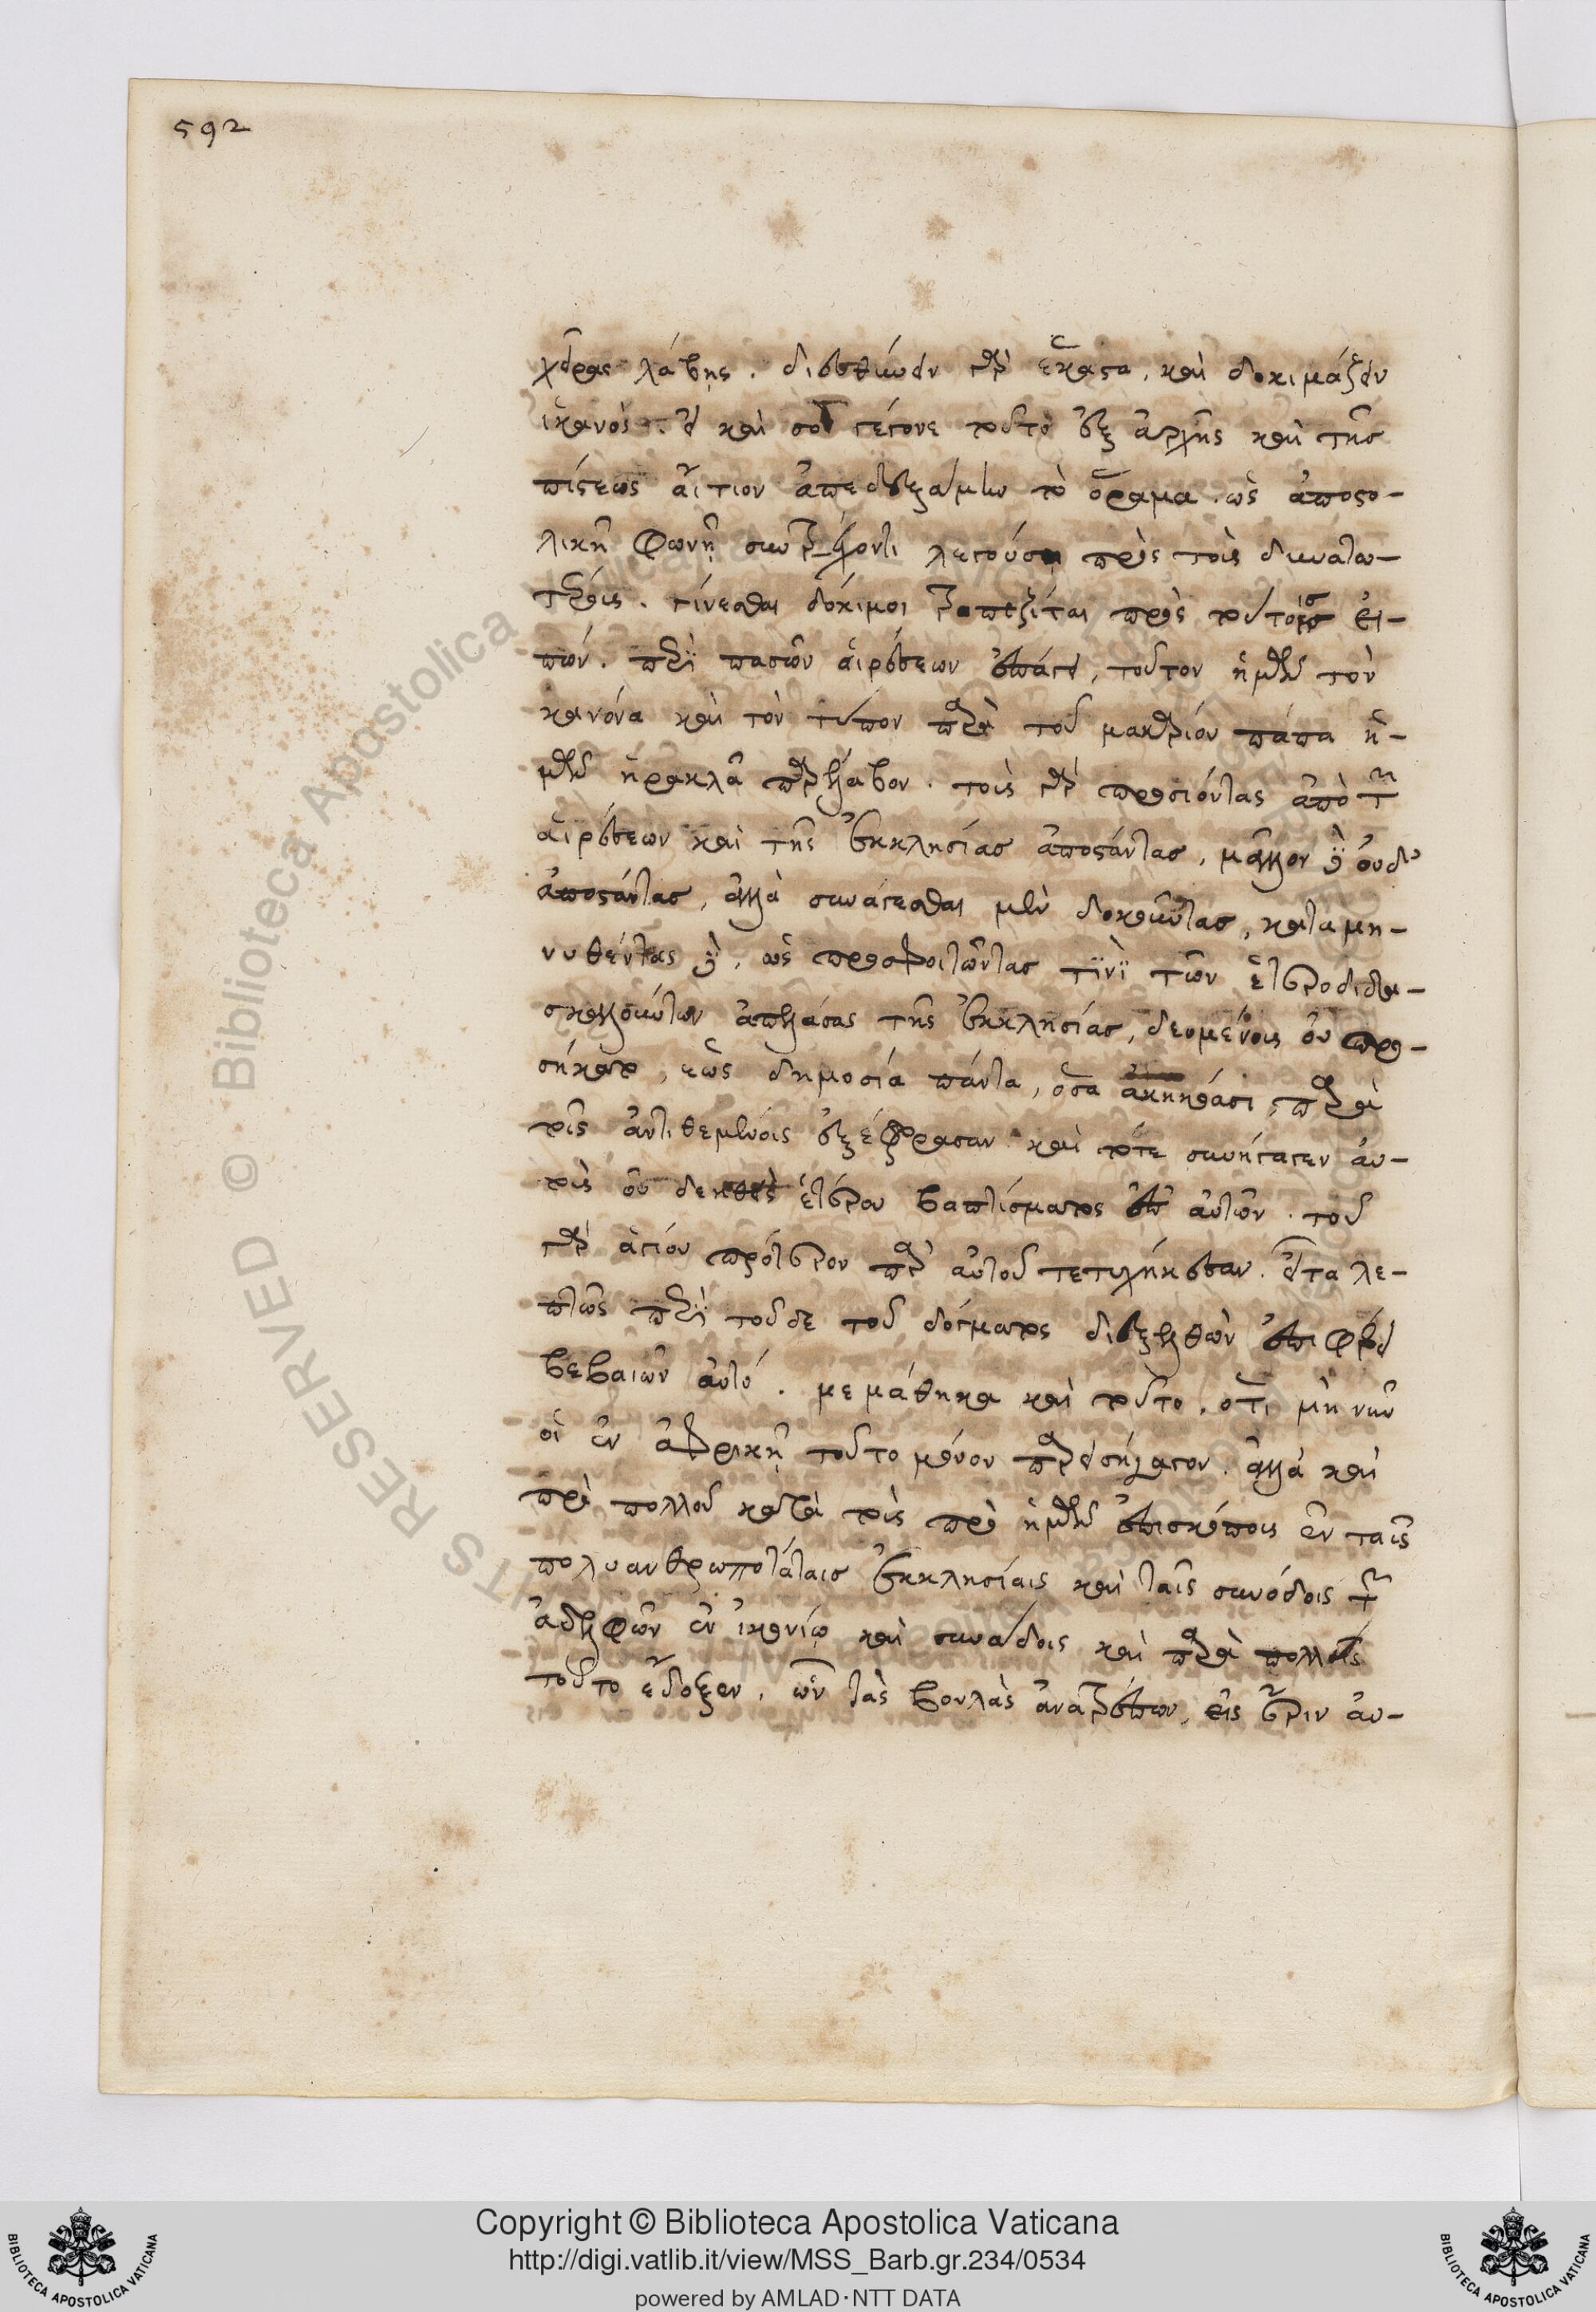 592
χεῖρας λάβης. διευθύνειν γὰρ ἕκαστα, καὶ δοκιμάζειν
ἱκανὸς εἶ καὶ σοὶ γέγονε τοῦτο ἐξ ἀρχῆς καὶ τῆς
πίστεως αἴτιον ἀπεδεξάμην τὸ ὅραμα. ὡς ἀποστο-
λικῇ φωνῇ συντρέχον τι λεγούσῃ πρὸς τοὺς δυνατω-
τέρους. γίνεσθαι δόκιμοι τραπεζίται πρὸς τούτοις εἰ-
πών. περὶ πασῶν αἱρέσεων ἐπάγει, τοῦτον ἡμεῖς τὸν
κανόνα καὶ τὸν τύπον παρὰ τοῦ μακαρίου πάπα ἡ-
μῶν ἡρακλᾶ παρέλαβον. τοὺς γὰρ προσιόντας ἀπὸ τῶν
αἱρέσεων καὶ τῆς ἐκκλησίας ἀποστάντας, μᾶλλον δὲ οὐδ'
ἀποστάντας, ἀλλὰ συνάγεσθαι μὲν δοκοῦντας, καταμη-
νυθέντας δὲ, ὡς προσφοιτῶντας τινὶ τῶν ἑτεροδιδα-
σκαλούντων ἀπελάσας τῆς ἐκκλησίας, δεομένους οὐ προ-
σήκατο, ἕως δημοσία πάντα, ὅσα ἀκηκόασι παρὰ
τοῖς ἀντιθεμένοις ἐξέφρασαν καὶ τότε συνήγαγεν αὐ-
τοὺς οὐ δεηθεὶς ἑτέρου βαπτίσματος ἐπ' αὐτῶν. τοῦ
γὰρ ἁγίου πρότερον παρ' αὐτοῦ τετυχήκεσαν. εἶτα λε-
πτῶς περὶ τοῦδε τοῦ δόγματος διεξελθὼν ἐπιφέρει
βεβαιῶν αὐτό. μεμάθηκα καὶ τοῦτο. ὅτι μὴ νῦν
οἱ ἐν ἀφρικῇ τοῦτο μόνον παρεισήγαγον. ἀλλὰ καὶ
πρὸ πολλοῦ κατὰ τοὺς πρὸ ἡμῶν ἐπισκόπους ἐν ταῖς
πολυανθρωποτάταις ἐκκλησίαις καὶ ταῖς συνόδοις τῶν
ἀδελφῶν ἐν ἰκονίῳ καὶ συνάδοις καὶ παρὰ πολλοῖς
τοῦτο ἔδοξεν, ὧν τὰς βουλὰς ἀνατρέπων, εἰς ἔριν αὐ-
Copyright © Biblioteca Apostolica Vaticana
http://digi.vatlib.it/view/MSS_Barb.gr.234/0534
powered by AMLAD·NTT DATA
BIBLIOTECA APOSTOLICA VATICANA
BIBLIOTECA APOSTOLICA VATICANA